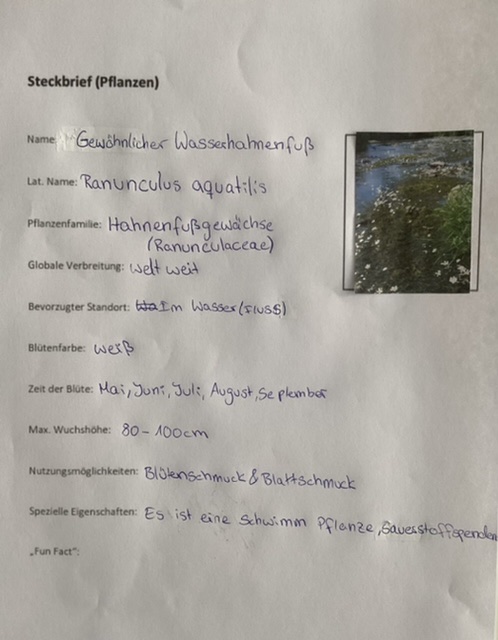 Steckbrief (Pflanzen)
Name: Gewöhnlicher Wasserhahnenfuß
Lat. Name: Ranunculus aquatilis
Pflanzenfamilie: Hahnenfußgewächse
(Ranunculaceae)
Globale Verbreitung: welt weit
Bevorzugter Standort: Im Wasser (Fluss)
Blütenfarbe: weiß
Zeit der Blüte: Mai, Juni, Juli, August, September
Max. Wuchshöhe: 80-100cm
Nutzungsmöglichkeiten: Blütenschmuck & Blattschmuck
Spezielle Eigenschaften: Es ist eine Schwimm Pflanze, Sauerstoffspender
„Fun Fact":